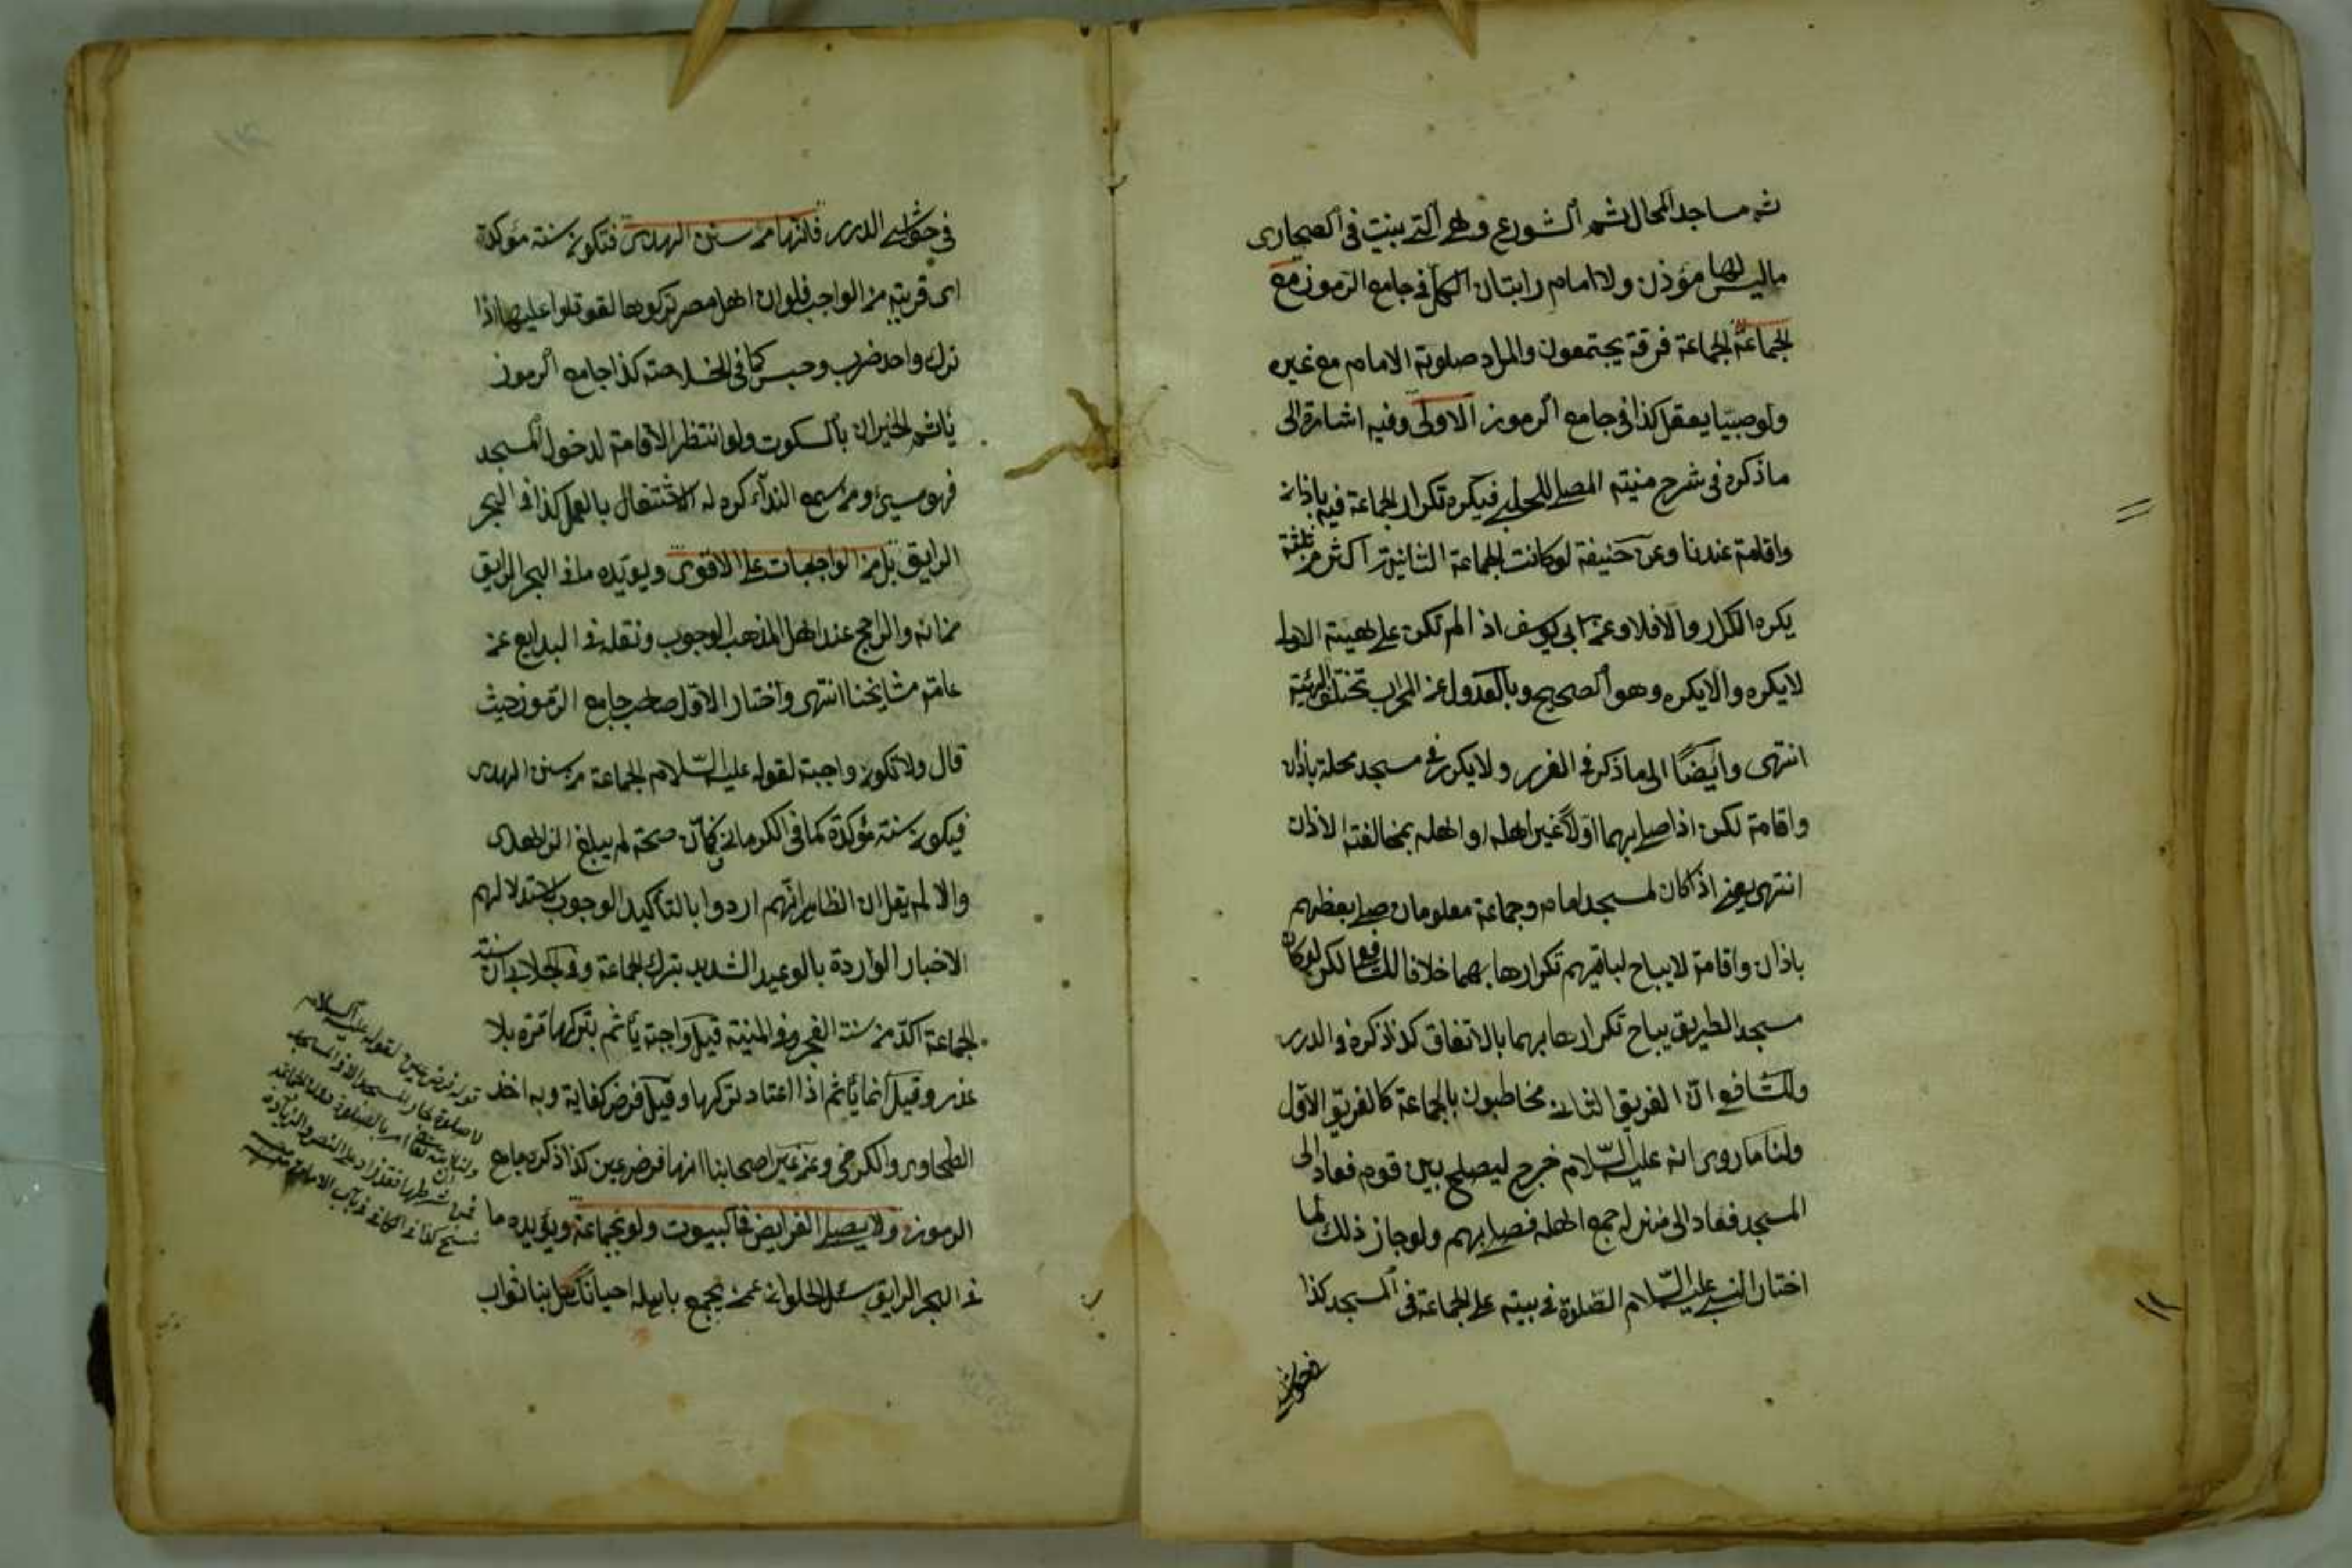 ثم مساجد المحال ثم الشورع وهى التى بنيت فى الصحارى
ماليس لها مؤذن ولا امام راتبان الكل فى جامع الرموز مع
الجماعة الجماعة فرقة يجتمعون والمراد صلوة الامام مع غيره
ولو صبيا يعقل كذا فى جامع الرموز الاولى وفيه اشارة الى
ما ذكره فى شرح منية المصلى للحلبى فيكره تكرار الجماعة فيه باذان
واقامة عندنا وعن حنيفة لو كانت الجماعة الثانية اكثر من ثلثة
يكره التكرار والا فلا وعن ابى يوسف اذا لم تكن على هيئة الاولى
لا يكره والا يكره وهو الصحيح وبالعدول عن المحراب تختلف الهيئة
انتهى وايضا الى ما ذكر فى الغرر ولا يكرر فى مسجد محلة باذان
واقامة لكن اذا صلى بهما اولا غير اهله او اهله بمخالفته الاذان
انتهى يعنى اذا كان لمسجد امام وجماعة معلومان صلى بعضهم
باذان واقامة لا يباح لباقيهم تكرارها بهما خلافا للشافعى لكن لو كان
مسجد الطريق يباح تكرارها بهما بالاتفاق كذا ذكره فى الدرر
وللشافعى ان الفريق الثانى مخاطبون بالجماعة كالفريق الاول
ولنا ما روى انه عليه السلام خرج ليصلح بين قوم فعاد الى
المسجد فعاد الى منزله جمع اهله فصلى بهم ولو جاز ذلك لما
اختار النبى عليه السلام الصلوة فى بيته على الجماعة فى المسجد كذا
فى حواشى
فى حواشى الدرر فانها من سنن الهدى فتكون سنة مؤكدة
اى قريبة من الواجب فلو ان اهل مصر تركوها لقوتلوا عليها اذا
ترك واحد ضرب وحبس كما فى الخلاصة كذا جامع الرموز
يأثم الجيران بالسكوت ولو انتظر الاقامة لدخول المسجد
فهو مسيئ ومن سمع النداء كره له الاشتغال بالعمل كذا فى البحر
الرايق بل من الواجبات على الاقوى ويؤيده ما فى البحر الرايق
من انه والراجح عند اهل المذهب الوجوب ونقله فى البدايع عن
عامة مشايخنا انتهى واختار الاول صاحب جامع الرموز حيث
قال ولا تكون واجبة لقوله عليه السلام الجماعة من سنن الهدى
فيكون سنة مؤكدة كما فى الكرمانى صحة لم يبلغ الزاهدى
والا لم يقل ان الظاهر انهم ارادوا بالتأكيد الوجوب لاستدلالهم
الاخبار الواردة بالوعيد الشديد بترك الجماعة وفى الجلابى ان سنة
الجماعة آكد من سنة الفجر وفى المنية قيل واجبة يأثم بتركها مرة بلا
عذر وقيل انما يأثم اذا اعتاد تركها وقيل فرض كفاية وبه اخذ
الطحاوى والكرخى وعن غير اصحابنا انها فرض عين كذا ذكره جامع
الرموز ولا يصلى الفرايض فى البيوت ولو بجماعة ويؤيده ما
فى البحر الرايق سئل الحلوانى عمن يجمع باهله احيانا هل ينال ثواب
قوله فرض عين لقوله عليه السلام
لا صلوة لجار المسجد الا فى المسجد
ولنا ان الله تعالى امر بالصلوة
فمن شرطها فقد زاد على النص والزيادة
نسخ كذا فى الكافى فى باب الامامة